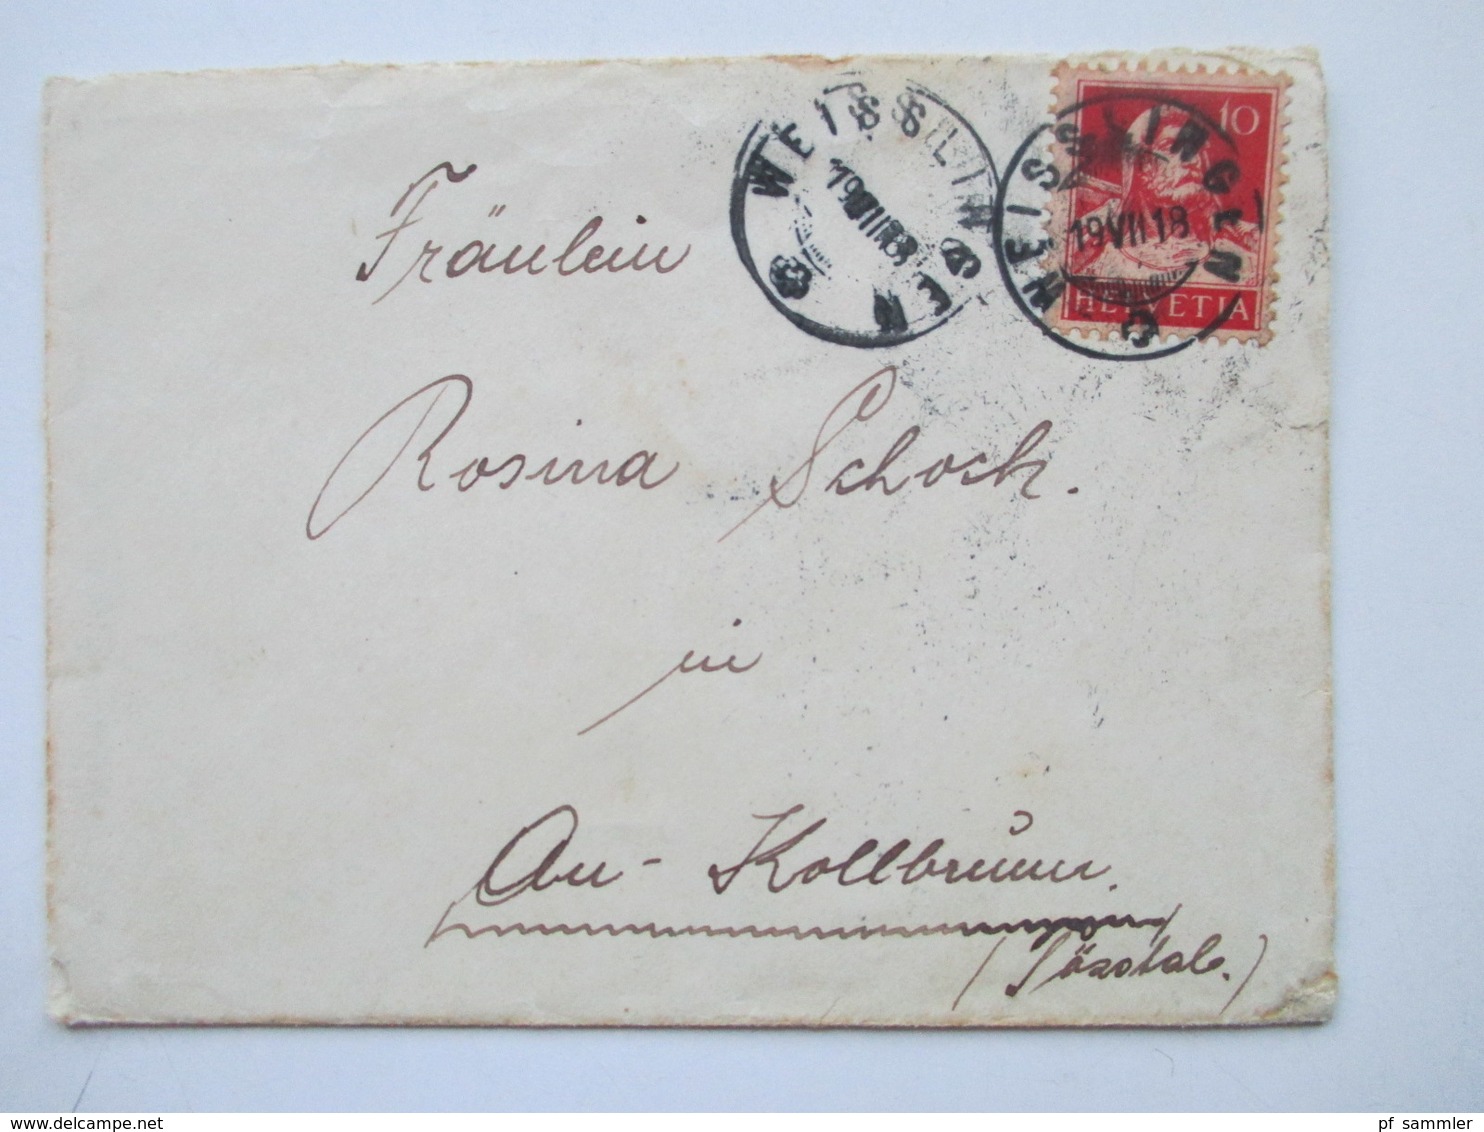 WEISSLINGEN
19 VII 18
10
WEISSLINGEN
19 VII 18
HELVETIA
Fräulein
Rosina Schoch.
in
Au - Kollbrunn.
(Tösstal.)
delcampe.net
pf_sammler